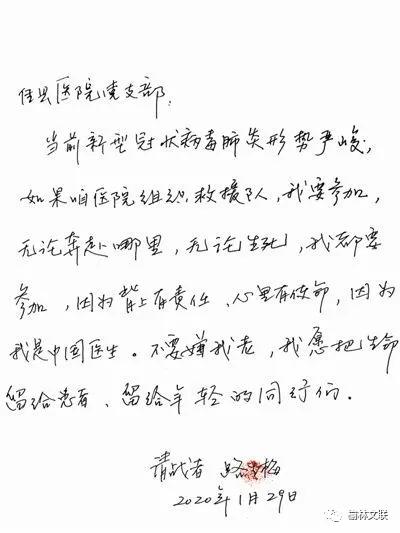 佳县医院党支部:
当前新型冠状病毒肺炎形势严峻,
如果咱医院组织救援队,我要参加,
无论奔赴哪里,无论生死,我都要
参加,因为背上有责任、心里有使命,因为
我是中国医生。不要嫌我老,我愿把生命
留给患者、留给年轻的同行们。
请战者 路梅
2020年1月29日
榆林文联